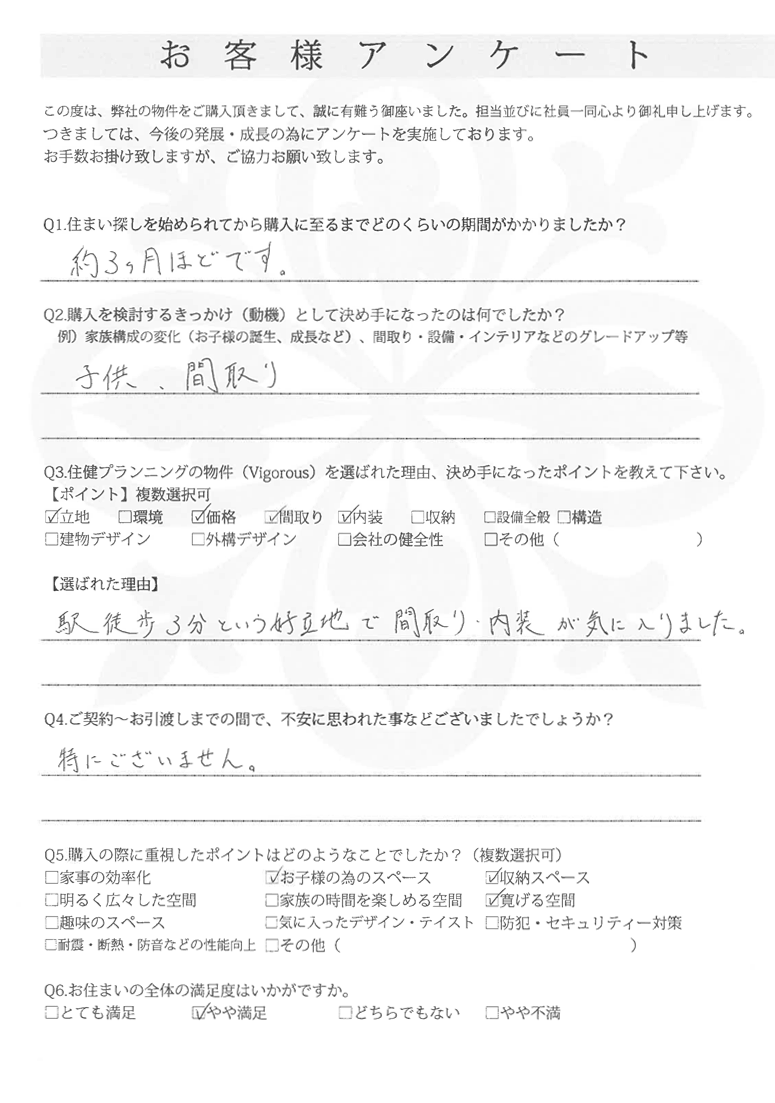 お客様アンケート
この度は、弊社の物件をご購入頂きまして、誠に有難う御座いました。担当並びに社員一同心より御礼申し上げます。
つきましては、今後の発展・成長の為にアンケートを実施しております。
お手数お掛け致しますが、ご協力お願い致します。
Q1.住まい探しを始められてから購入に至るまでどのくらいの期間がかかりましたか？
約3ヶ月ほどです。
Q2.購入を検討するきっかけ（動機）として決め手になったのは何でしたか？
例）家族構成の変化（お子様の誕生、成長など）、間取り・設備・インテリアなどのグレードアップ等
子供、間取り
Q3.住健プランニングの物件（Vigorous）を選ばれた理由、決め手になったポイントを教えて下さい。
【ポイント】複数選択可
☑立地 □環境 ☑価格 ☑間取り ☑内装 □収納 □設備全般 □構造
□建物デザイン □外構デザイン □会社の健全性 □その他（ ）
【選ばれた理由】
駅徒歩3分という好立地で間取り・内装が気に入りました。
Q4.ご契約～お引渡しまでの間で、不安に思われた事などございましたでしょうか？
特にございません。
Q5.購入の際に重視したポイントはどのようなことでしたか？（複数選択可）
□家事の効率化 ☑お子様の為のスペース ☑収納スペース
□明るく広々した空間 □家族の時間を楽しめる空間 ☑寛げる空間
□趣味のスペース □気に入ったデザイン・テイスト □防犯・セキュリティー対策
□耐震・断熱・防音などの性能向上 □その他（ ）
Q6.お住まいの全体の満足度はいかがですか。
□とても満足 ☑やや満足 □どちらでもない □やや不満